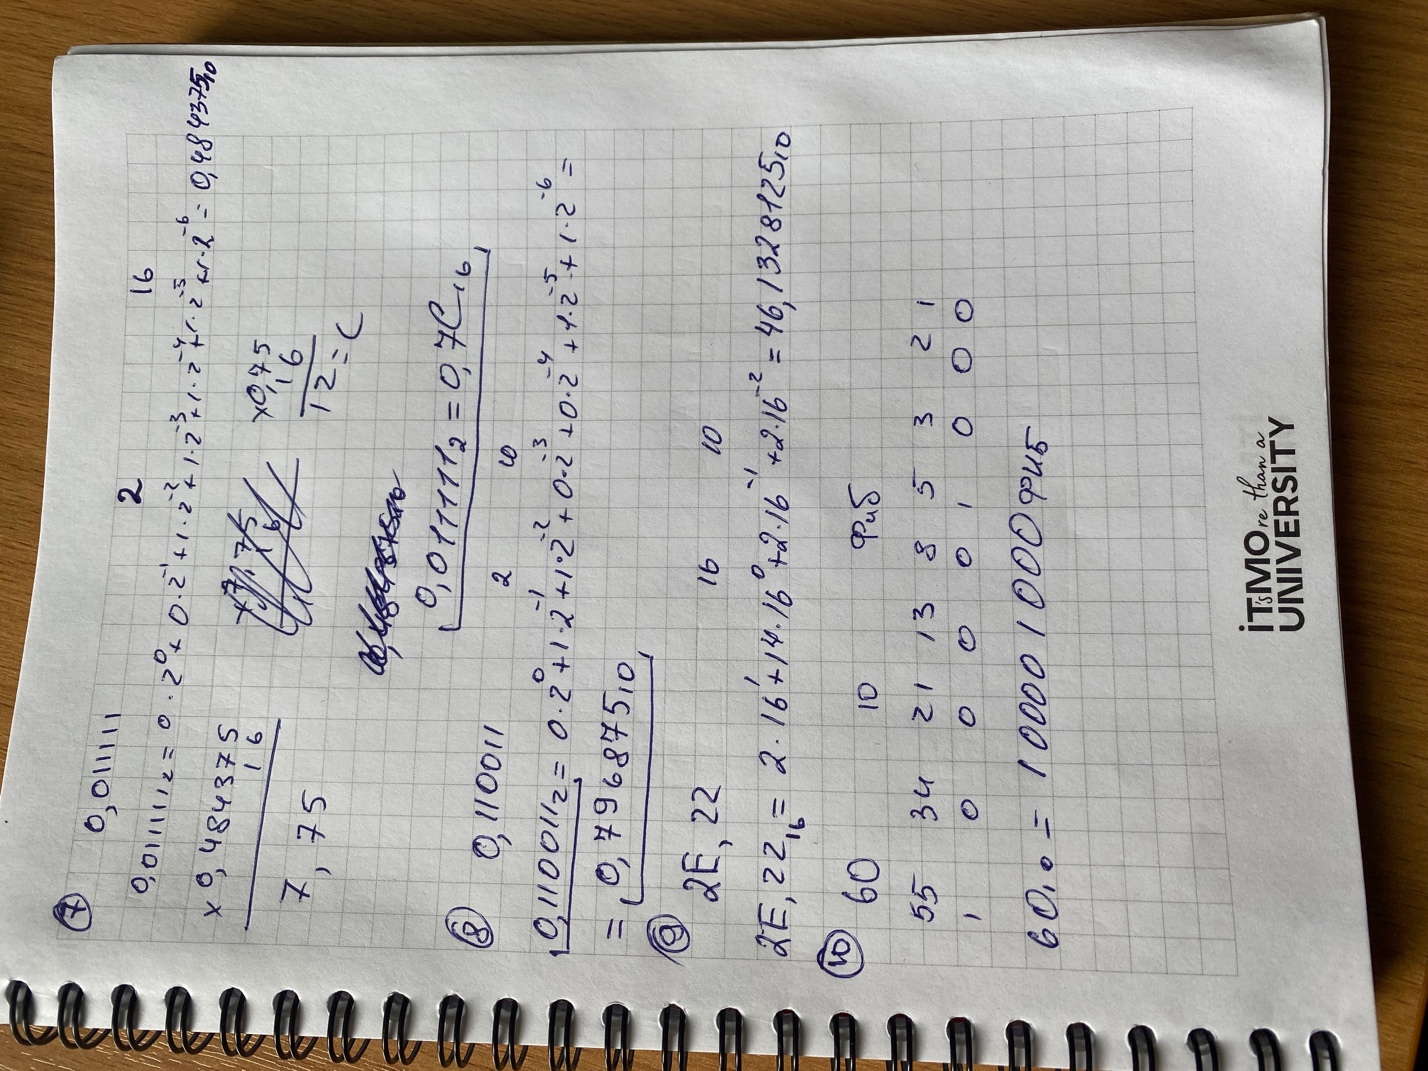 7 0,011111 2 16
0,011111₂ = 0·2⁰+0·2⁻¹+1·2⁻²+1·2⁻³+1·2⁻⁴+1·2⁻⁵+1·2⁻⁶=0,484375₁₀
×0,484375 ×0,75
16 16
7,75 12=C
0,011111₂ = 0,7C₁₆
8 0,110011 2 10
0,110011₂ = 0·2⁰+1·2⁻¹+1·2⁻²+0·2⁻³+0·2⁻⁴+1·2⁻⁵+1·2⁻⁶=
= 0,796875₁₀
9 2E,22 16 10
2E,22₁₆ = 2·16¹+14·16⁰+2·16⁻¹+2·16⁻² = 46,1328125₁₀
10 60 10 Фиб
55 34 21 13 8 5 3 2 1
1 0 0 0 0 1 0 0 0
60₁₀ = 100001000 Фиб
ITMOre than a
is
UNIVERSITY